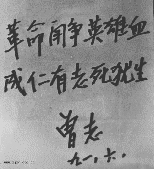 革命鬥争英雄血
成仁有志死犹生
曾志
九一.六.